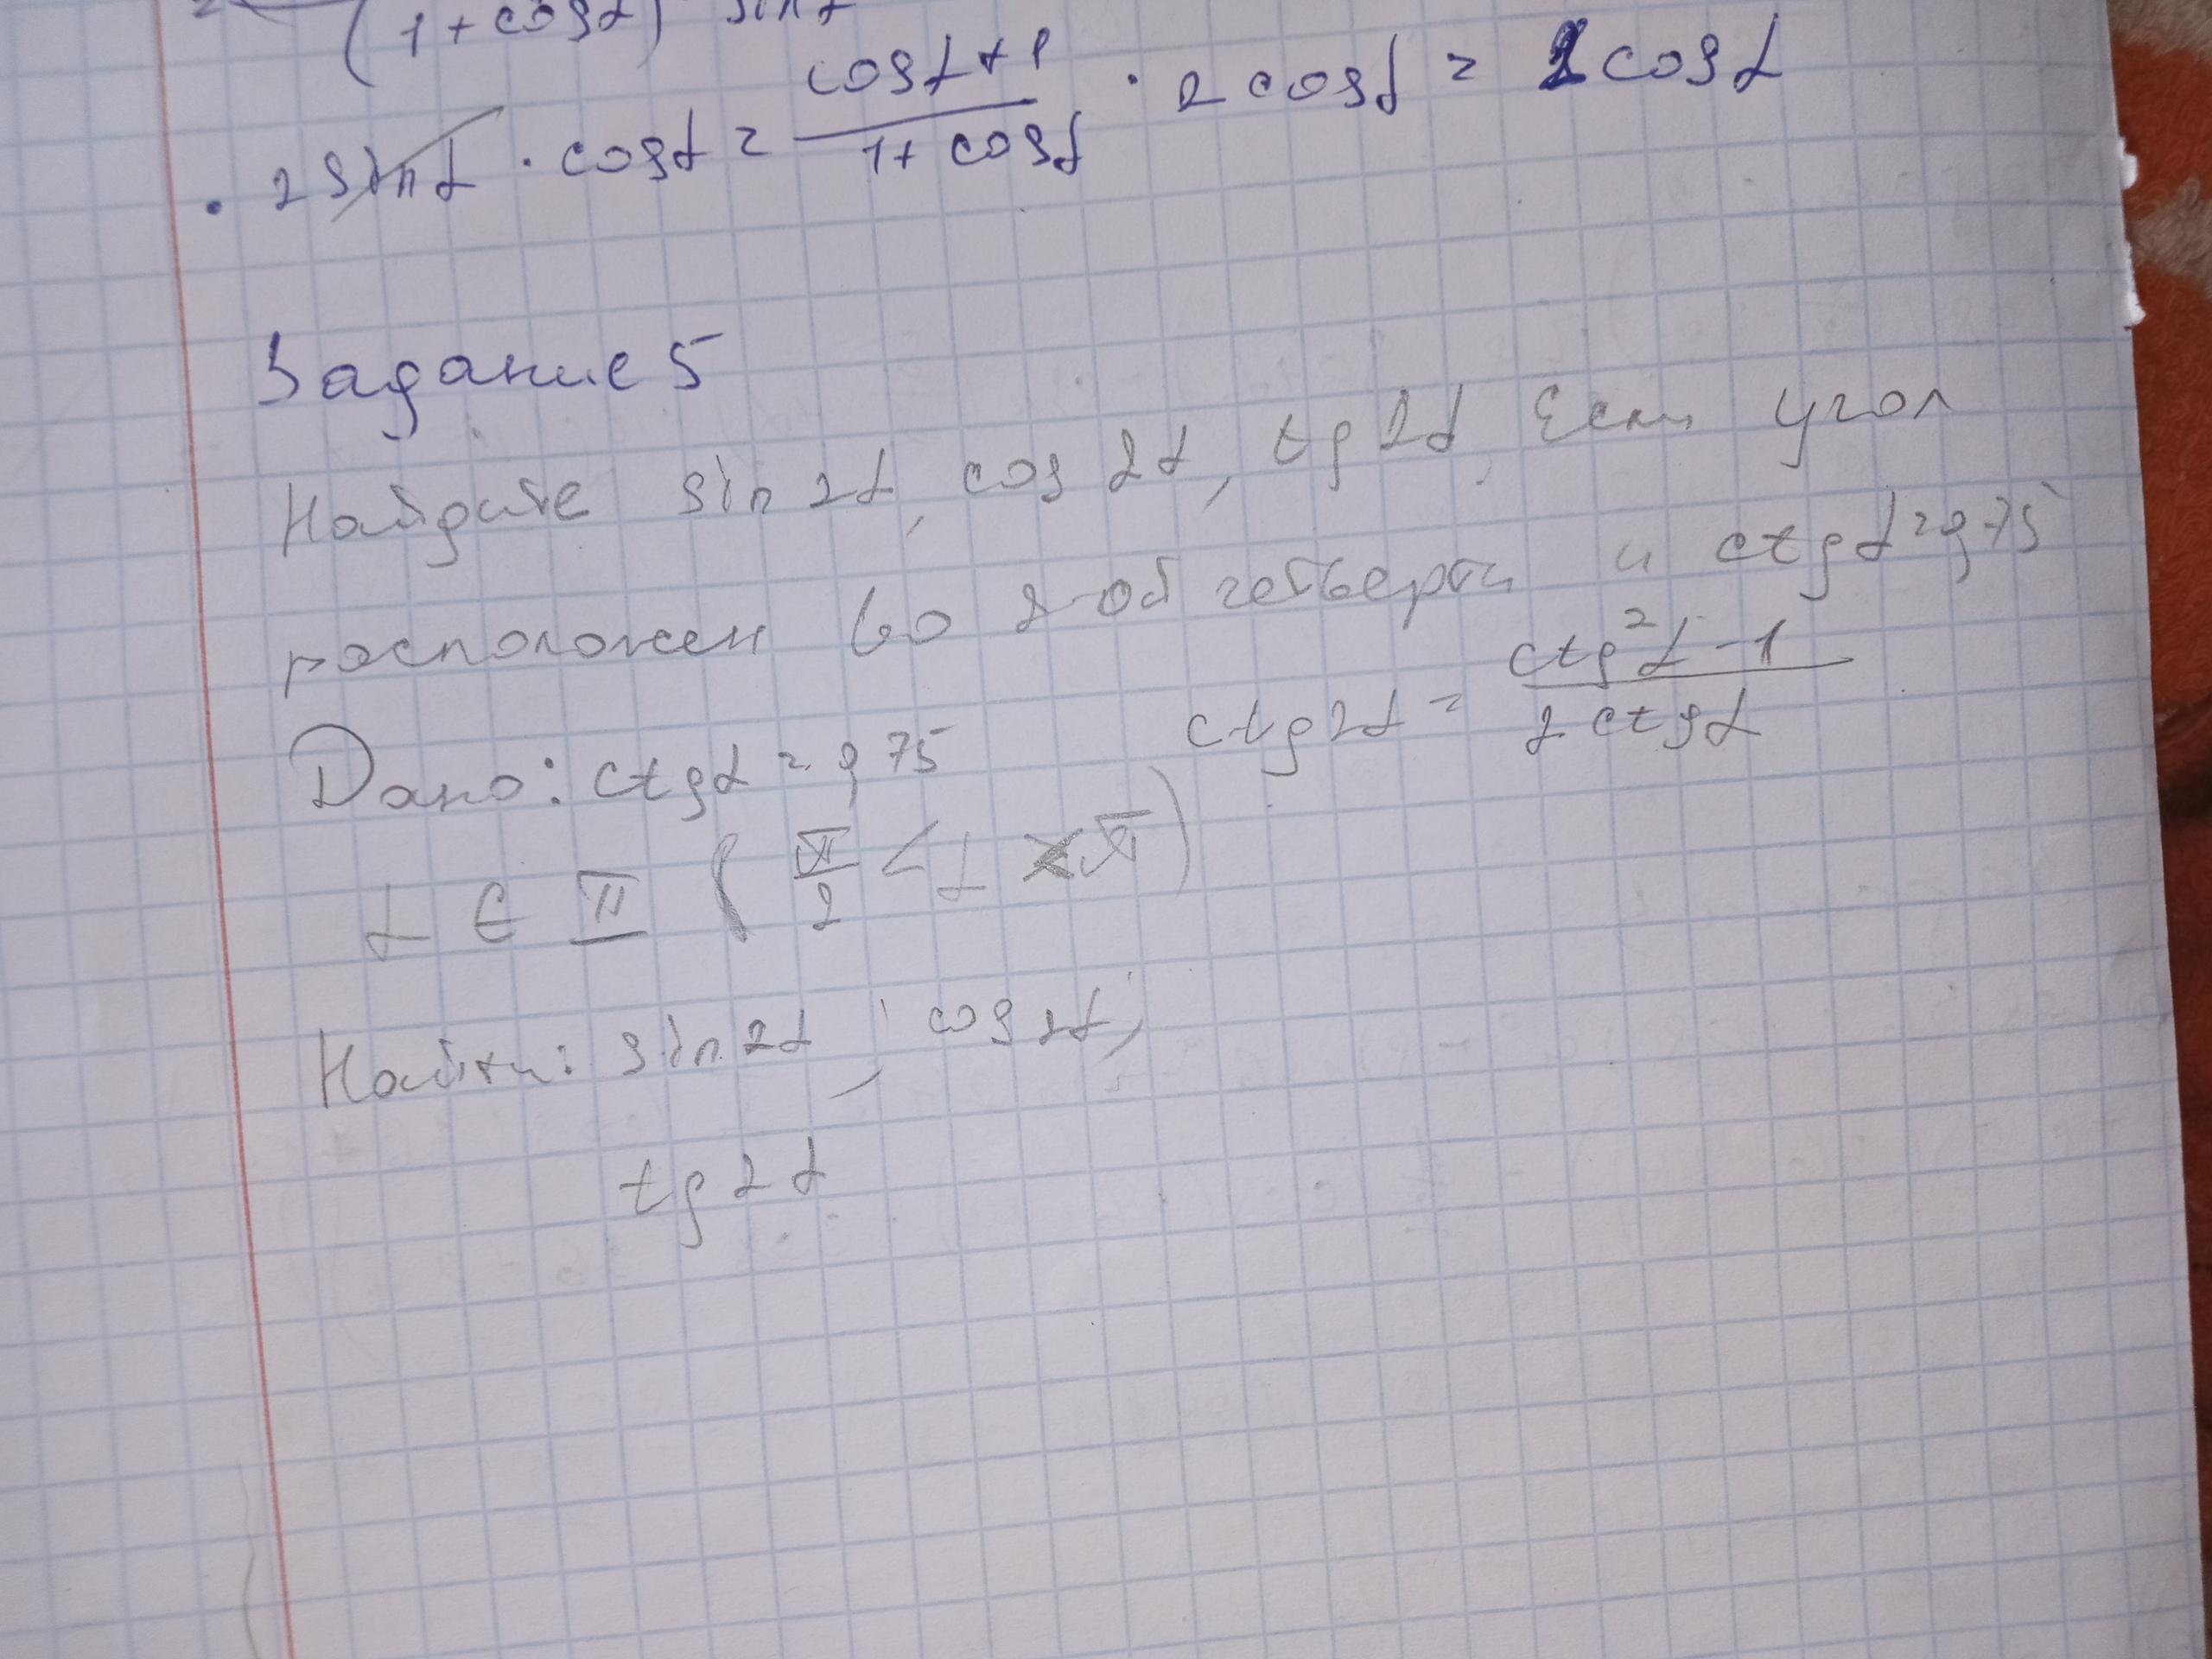 (1+cosα) sinα
· 2 sinα · cosα = cosα+1 / 1+cosα · 2 cosα = 2 cosα
Задание 5
Найдите sin 2α, cos 2α, tg 2α, Если угол
расположен во 2-ой четверти и ctgα=0,75
Дано: ctgα = 0,75
ctg2α = ctg²α-1 / 2ctgα
α ∈ II ( π/2 < α < π )
Найти: sin 2α, cos 2α,
tg 2α